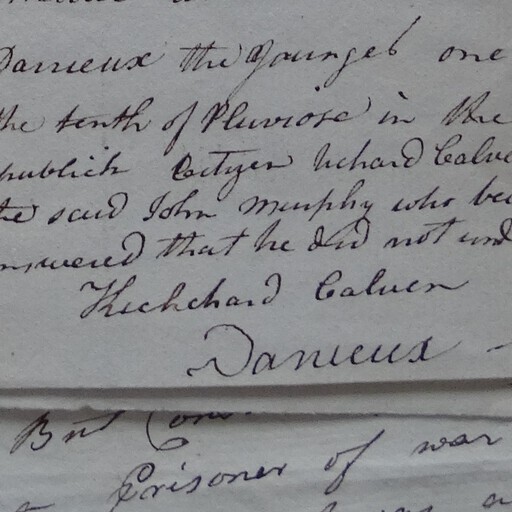 Danieux the Younger one
the tenth of Pluviose in the
publick Citizen Richard Calve
the said John Murphy who bei
nswered that he did not und
Richchard Calven
Danieux
But
Prisoner of war